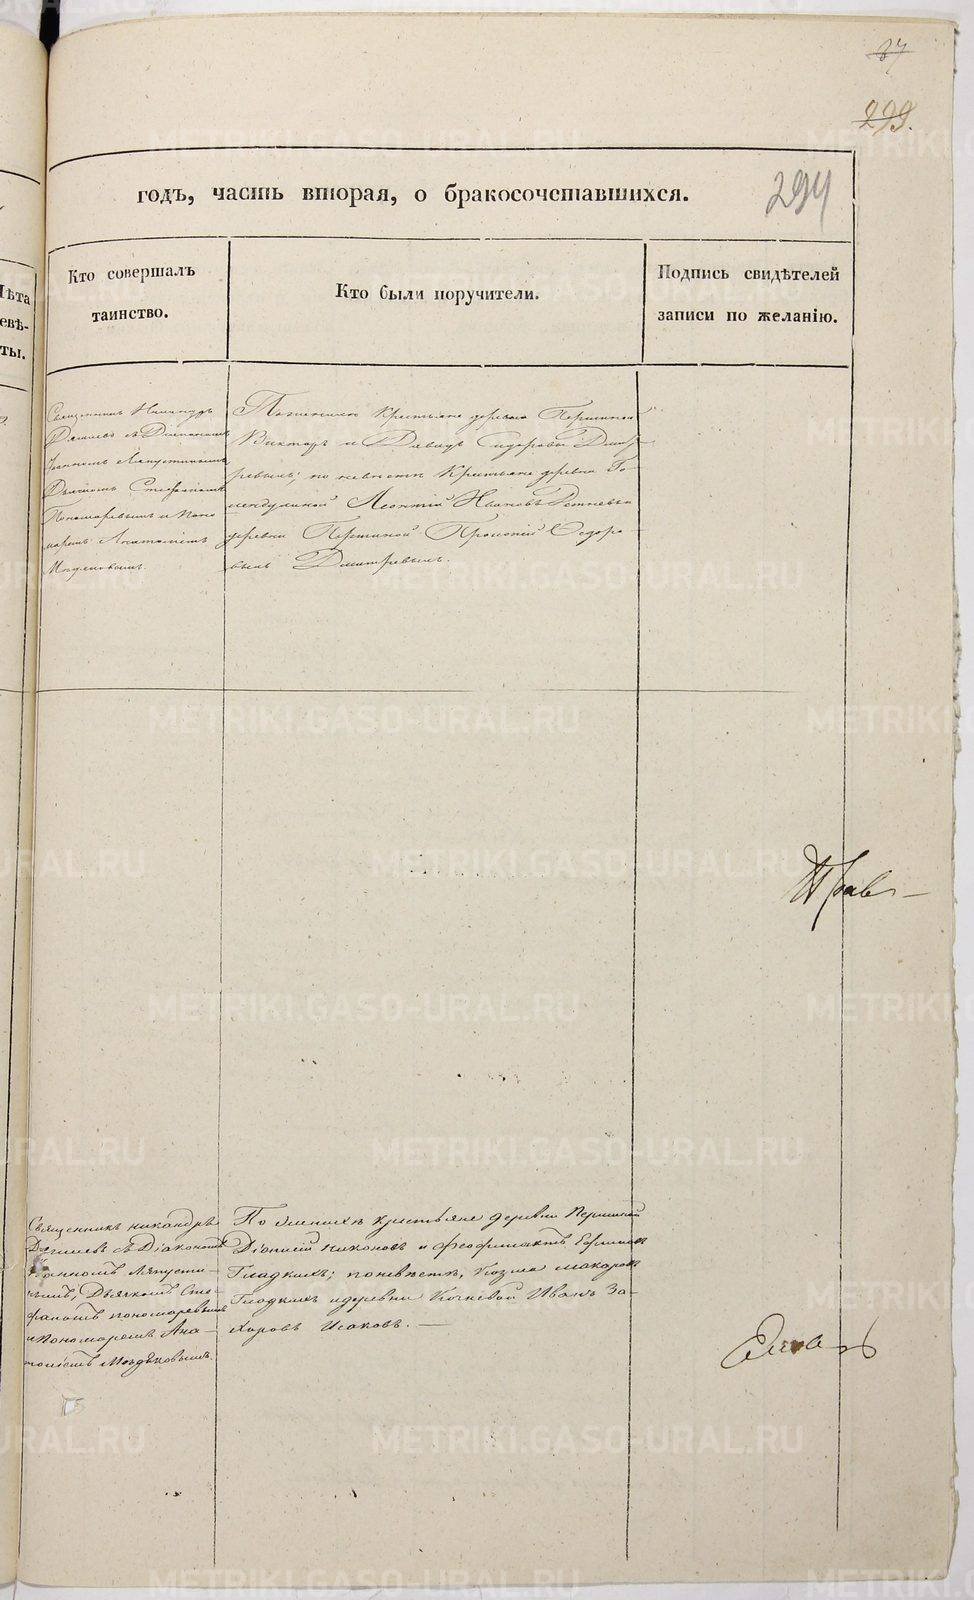 37
299.
294
годъ, часть вторая, о бракосочетавшихся.
Лѣта
евѣ-
ты.
Кто совершалъ
таинство.
Кто были поручители.
Подпись свидѣтелей
записи по желанію.
Священникъ Никандръ
съ Діакономъ
Іоанномъ Ляпустинымъ
Дьячкомъ Стефаномъ
Пономаревымъ и Поно
маремъ Анатоліемъ
По женихѣ Крестьяне деревни Першиной
Викторъ и Давидъ Сидоровы Дмит-
ревыхъ; по невѣстѣ Крестьяне деревни
Леонтій Ивановъ
деревни Першиной Ѳедоро
выхъ Дмитревыхъ.
Священникъ Никандръ
съ Діакономъ
Іоанномъ Ляпусти-
нымъ, Дьячкомъ Сте-
фаномъ Пономаревымъ
и Пономаремъ Ана-
толіемъ
По женихѣ крестьяне деревни Першиной
Діонисій Никоновъ и Феофилактъ Ефимовъ
Гладкихъ; по невѣстѣ, Козма Макаровъ
Гладкихъ и деревни Кочневой Иванъ За-
харовъ Исаковъ. —
METRIKI.GASO-URAL.RU